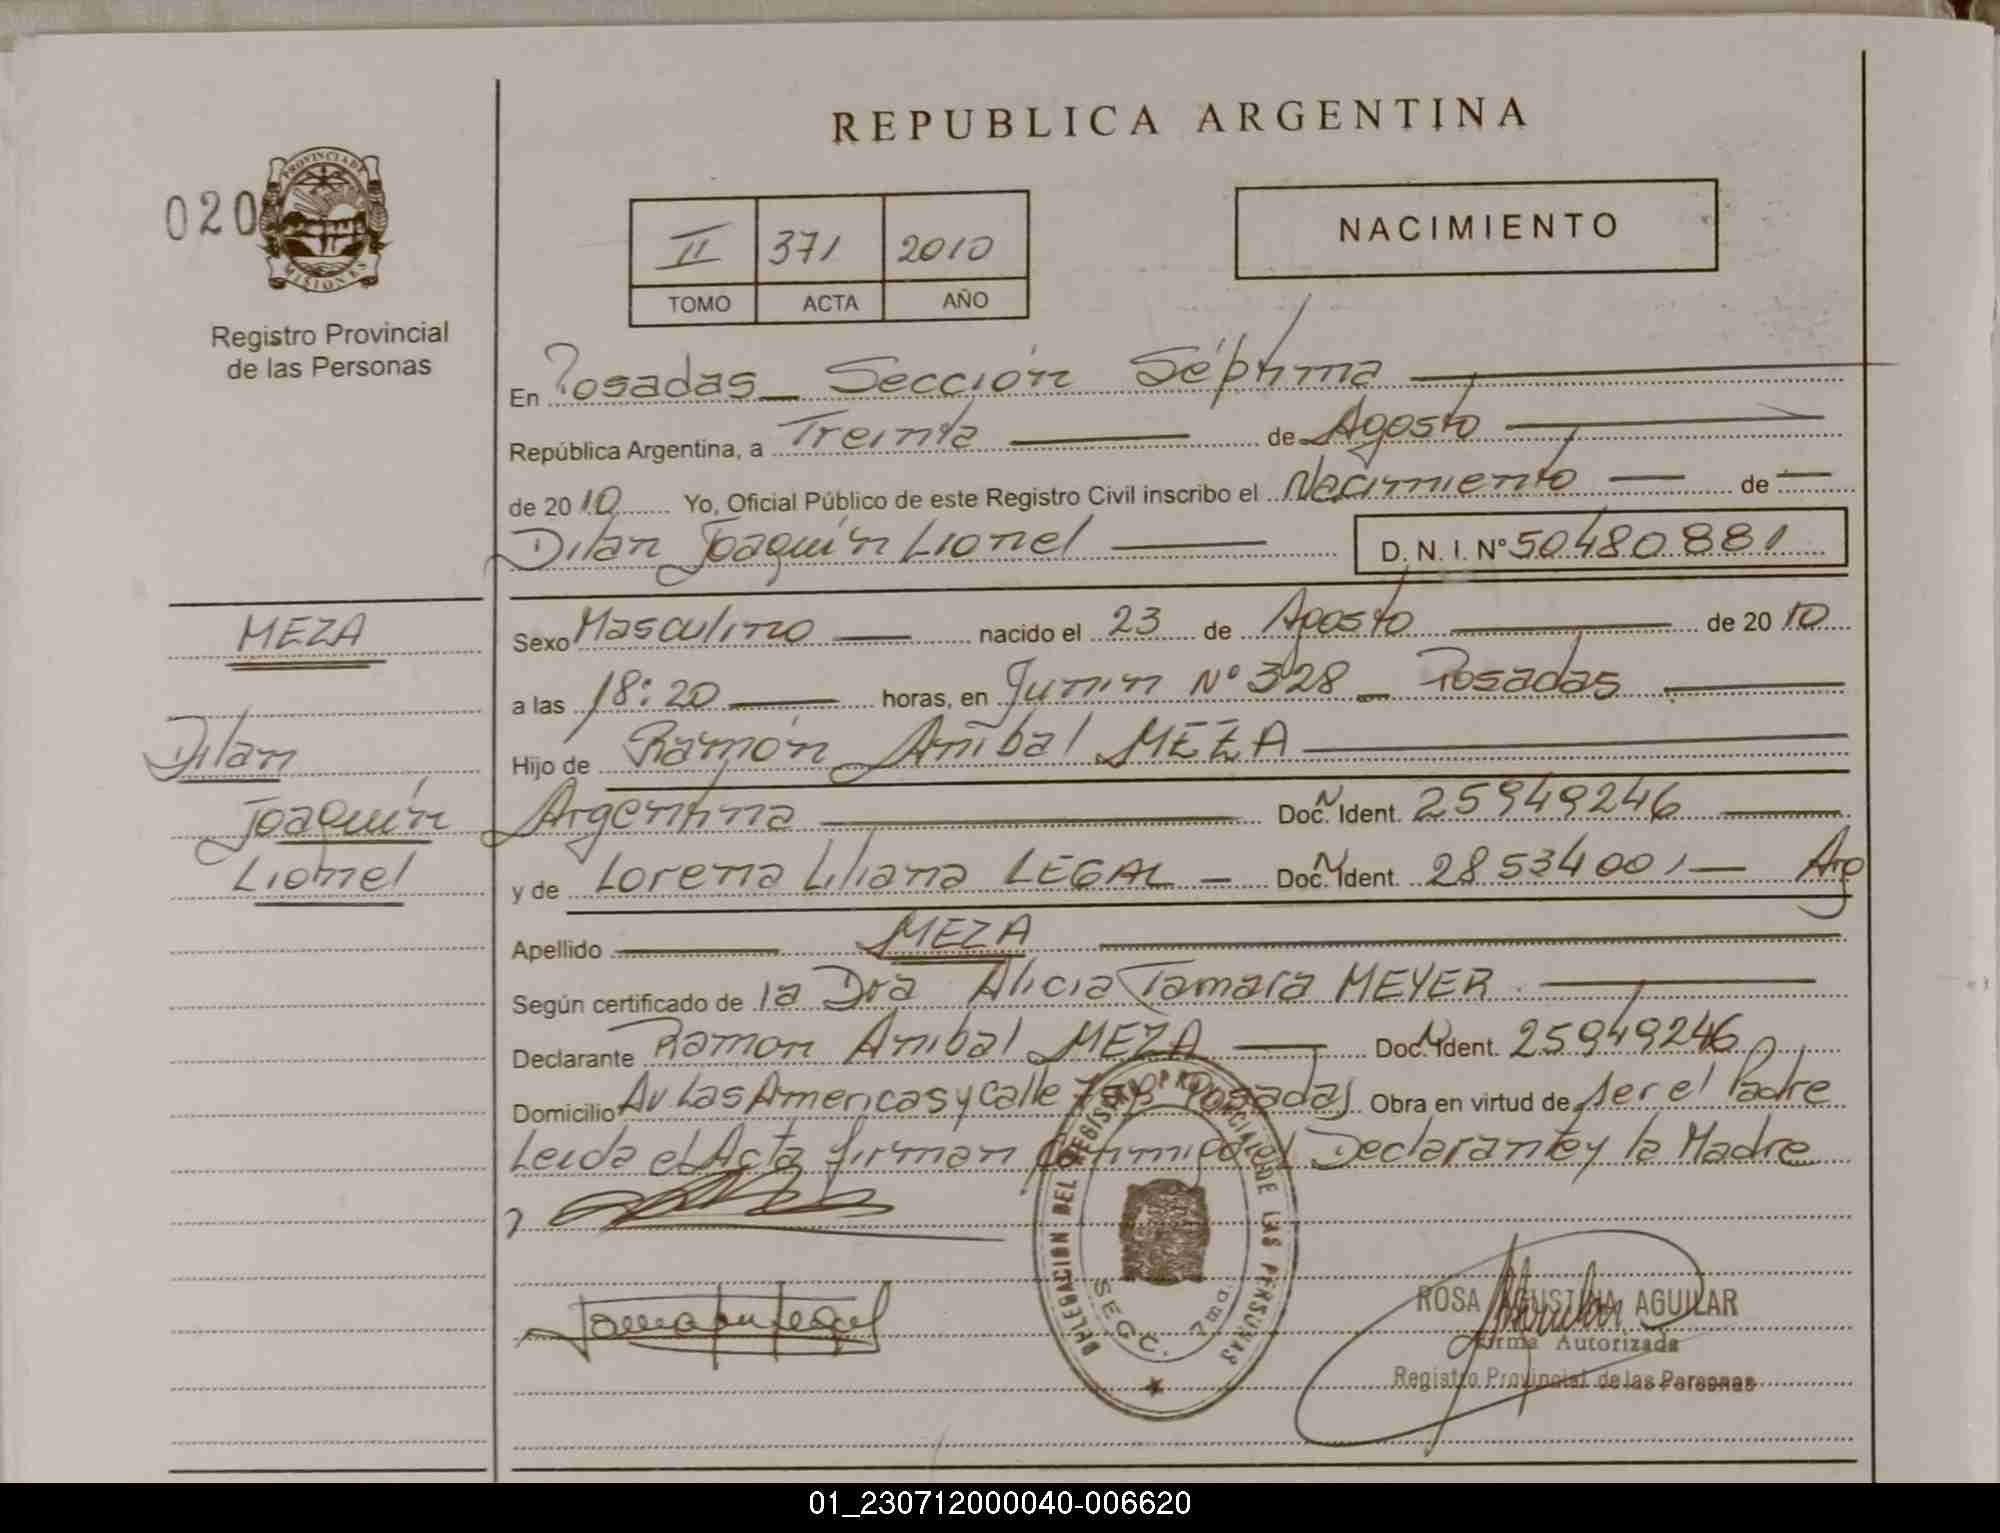 REPUBLICA ARGENTINA
020
PROVINCIA DE
MISIONES
Registro Provincial
de las Personas
II 371 2010
TOMO ACTA AÑO
NACIMIENTO
En Posadas_ Sección Séptima
República Argentina, a Treinta de Agosto
de 2010 Yo, Oficial Público de este Registro Civil inscribo el Nacimiento de
Dilan Joaquín Lionel D. N. I. Nº 50480881
MEZA
Dilan
Joaquín
Lionel
Sexo Masculino nacido el 23 de Agosto de 2010
a las 18:20 horas, en Junín Nº 328 _ Posadas
Hijo de Ramón Aníbal MEZA
Argentina Doc. N Ident. 25949246
y de Lorena Liliana LEGAL Doc. N Ident. 28534001 Arg
Apellido MEZA
Según certificado de la Dra Alicia Tamara MEYER
Declarante Ramon Anibal MEZA Doc. N Ident. 25949246
Domicilio Av Las Americas y Calle Posadas Obra en virtud de ser el Padre
Leida el Acta firman conmigo el Declarante y la Madre
DELEGACION DEL REGISTRO PROVINCIAL DE LAS PERSONAS
SECC. 7ma.
ROSA AGUSTINA AGUILAR
Firma Autorizada
Registro Provincial de las Personas
01_230712000040-006620